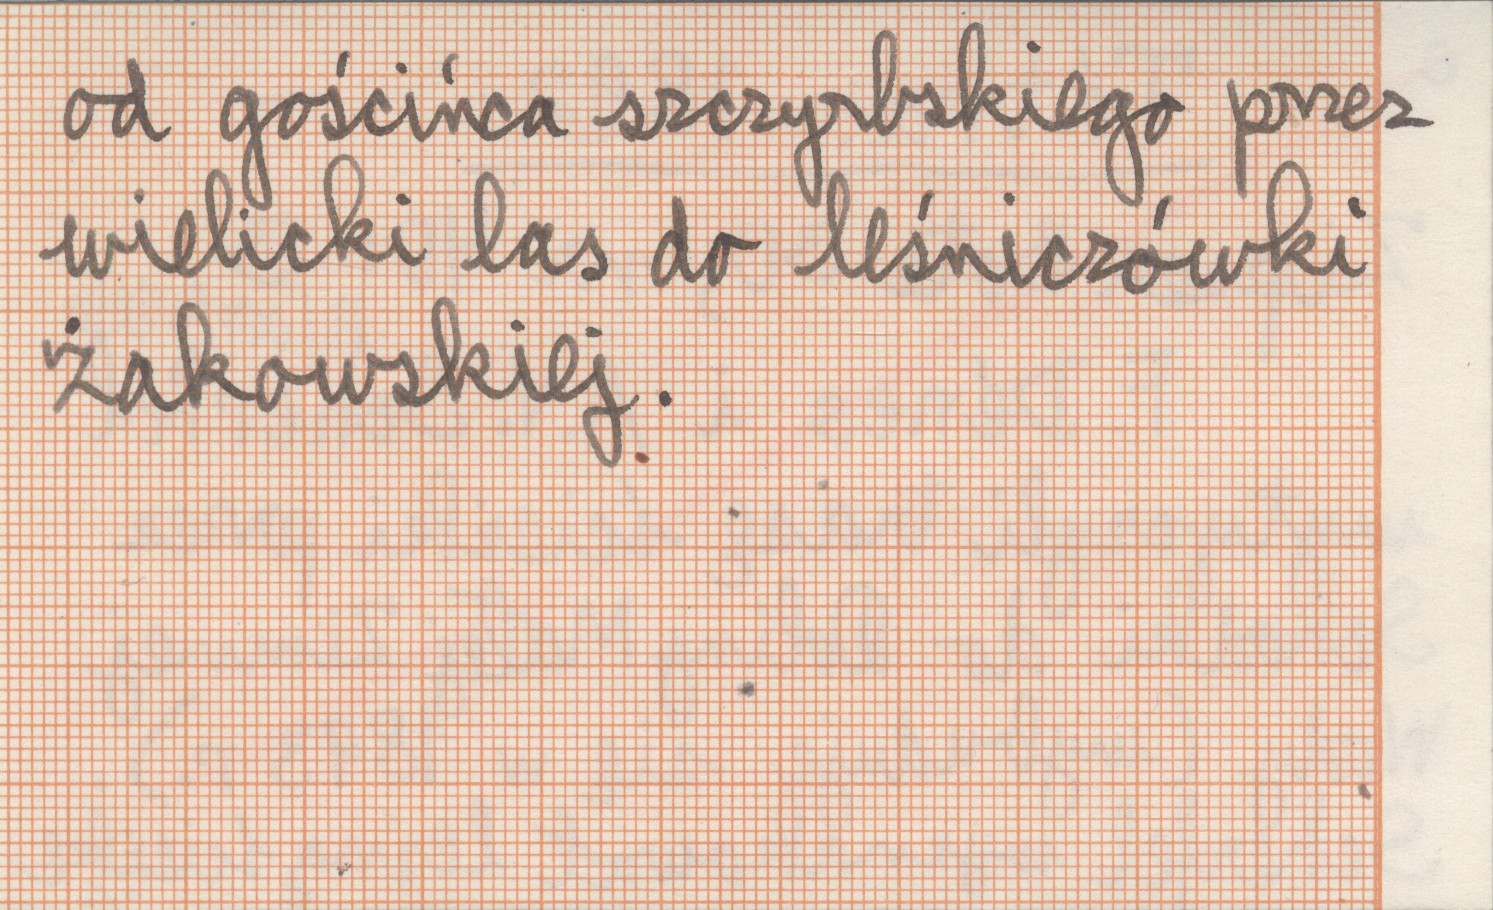 od gościńca szczyrbskiego przez
wielicki las do leśniczówki
żakowskiej.